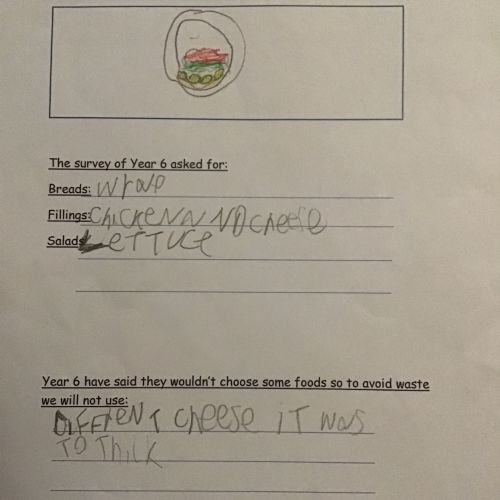 The survey of Year 6 asked for:
Breads: wrap
Fillings: ChickeNN NO cheese
Salad: LeTTUCe
Year 6 have said they wouldn't choose some foods so to avoid waste
we will not use:
DIFFIENT cheese iT was
TO Thick